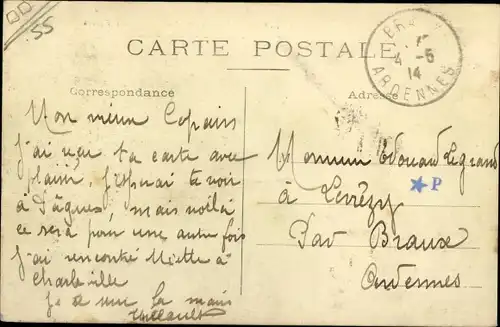 55
CARTE POSTALE
BRA
4 -5
14
ARDENNES
Correspondance
Adresse
Mon vieux Copain
J'ai reçu ta carte avec
plaisir, J'espérai te voir
à Pâques, mais voilà
ce sera pour une autre fois
J'ai rencontré à
Charleville
Je te serre la main
Monsieur Edouard Legrand
à Levrézy
Par Braux
Ardennes
P